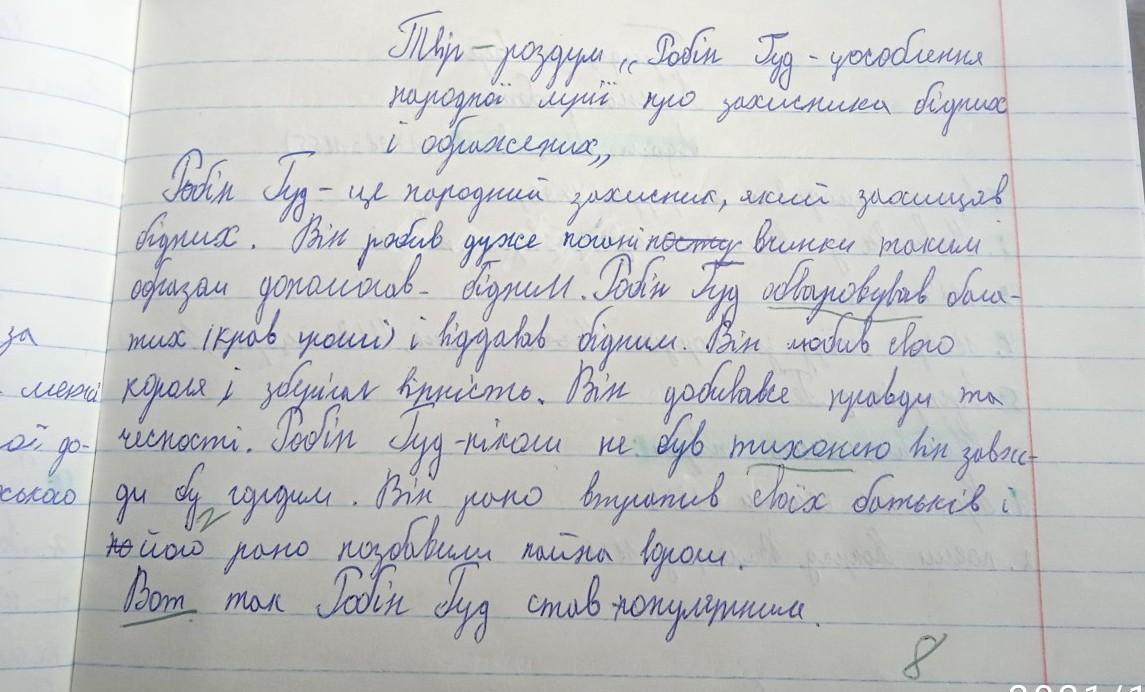 Твір - роздум „Робін Гуд - уособлення
народної мрії про захисника бідних
і ображених„
Робін Гуд - це народний захисник, який захищав
бідних. Він робив дуже погані вчинки таким
образом допомогав бідним. Робін Гуд обворовував бога-
за тих (крав гроші) і віддавав бідним. Він любив свого
межі короля і зберігав вірність. Він добивався правди та
ої до- чесності. Робін Гуд - ніколи не був тихонею він завж-
ського ди бу гордим. Він рано втратив своїх батьків і
його рано позбавили майна
Вот так Робін Гуд став популярним.
8